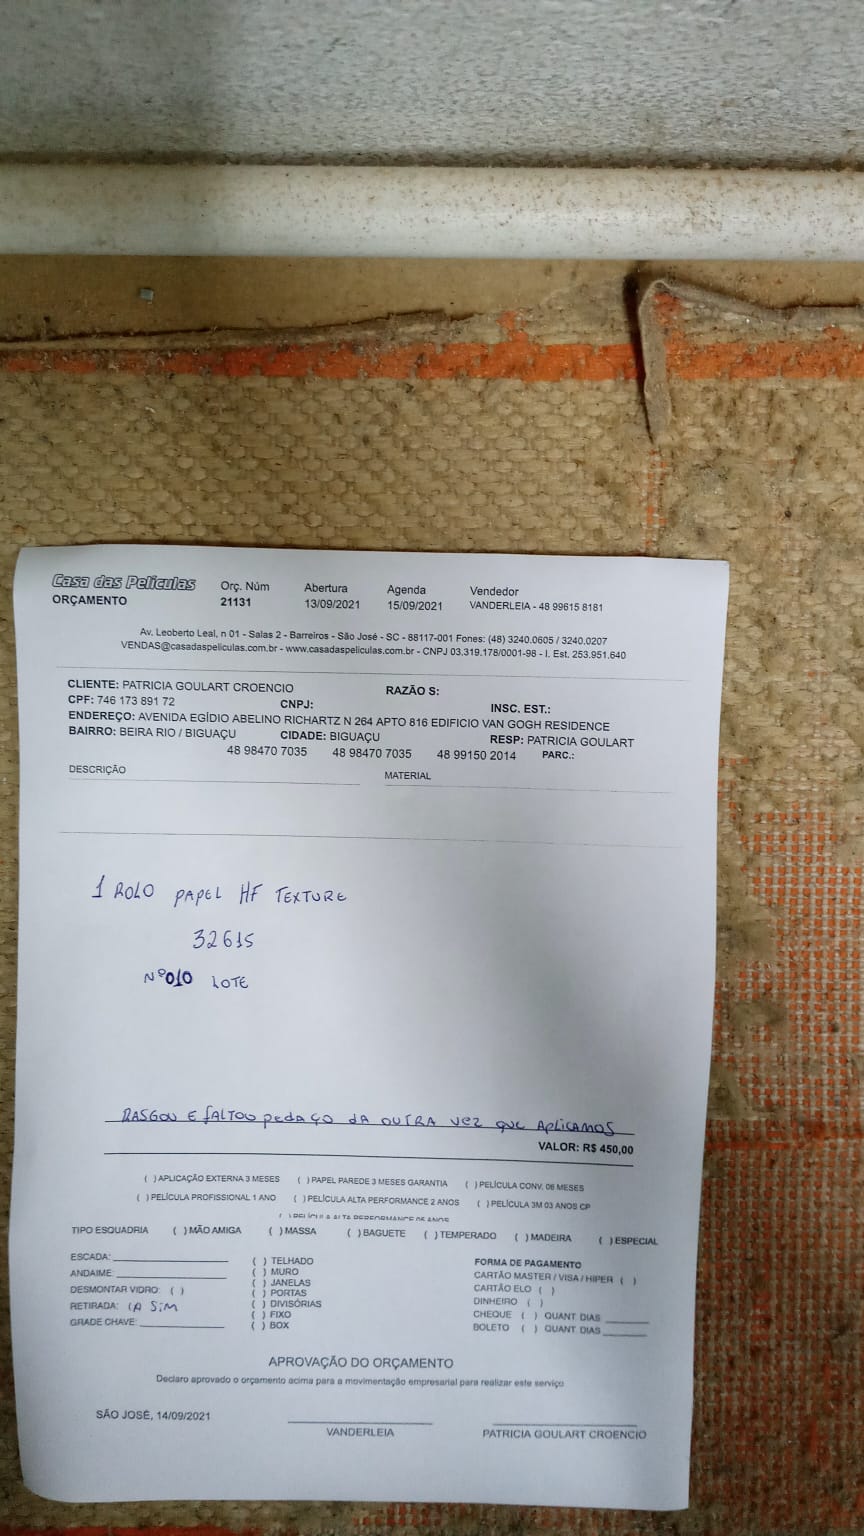 Casa das Películas
ORÇAMENTO
Orç. Núm
21131
Abertura
13/09/2021
Agenda
15/09/2021
Vendedor
VANDERLEIA - 48 99615 8181
Av. Leoberto Leal, n 01 - Salas 2 - Barreiros - São José - SC - 88117-001 Fones: (48) 3240.0605 / 3240.0207
VENDAS@casadaspeliculas.com.br - www.casadaspeliculas.com.br - CNPJ 03.319.178/0001-98 - I. Est. 253.951.640
CLIENTE: PATRICIA GOULART CROENCIO RAZÃO S:
CPF: 746 173 891 72 CNPJ: INSC. EST.:
ENDEREÇO: AVENIDA EGÍDIO ABELINO RICHARTZ N 264 APTO 816 EDIFICIO VAN GOGH RESIDENCE
BAIRRO: BEIRA RIO / BIGUAÇU CIDADE: BIGUAÇU RESP: PATRICIA GOULART
48 98470 7035 48 98470 7035 48 99150 2014 PARC.:
DESCRIÇÃO MATERIAL
1 ROLO PAPEL HF TEXTURE
32615
Nº 010 LOTE
RASGOU E FALTOU PEDAÇO DA OUTRA VEZ QUE APLICAMOS
VALOR: R$ 450,00
( ) APLICAÇÃO EXTERNA 3 MESES ( ) PAPEL PAREDE 3 MESES GARANTIA ( ) PELÍCULA CONV. 06 MESES
( ) PELÍCULA PROFISSIONAL 1 ANO ( ) PELÍCULA ALTA PERFORMANCE 2 ANOS ( ) PELÍCULA 3M 03 ANOS CP
( ) PELÍCULA ALTA PERFORMANCE 05 ANOS
TIPO ESQUADRIA ( ) MÃO AMIGA ( ) MASSA ( ) BAGUETE ( ) TEMPERADO ( ) MADEIRA ( ) ESPECIAL
ESCADA:
ANDAIME:
DESMONTAR VIDRO: ( )
RETIRADA: SIM
GRADE CHAVE:
( ) TELHADO
( ) MURO
( ) JANELAS
( ) PORTAS
( ) DIVISÓRIAS
( ) FIXO
( ) BOX
FORMA DE PAGAMENTO
CARTÃO MASTER / VISA / HIPER ( )
CARTÃO ELO ( )
DINHEIRO ( )
CHEQUE ( ) QUANT DIAS
BOLETO ( ) QUANT DIAS
APROVAÇÃO DO ORÇAMENTO
Declaro aprovado o orçamento acima para a movimentação empresarial para realizar este serviço
SÃO JOSÉ, 14/09/2021
VANDERLEIA
PATRICIA GOULART CROENCIO